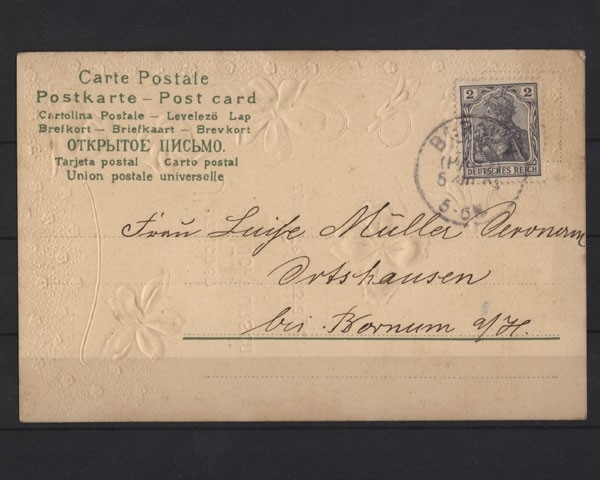 Carte Postale
Postkarte – Post card
Cartolina Postale – Levelező Lap
Brefkort – Briefkaart – Brevkort
ОТКРЫТОЕ ПИСЬМО.
Tarjeta postal Carto postal
Union postale universelle
2 2
DEUTSCHES REICH
Frau Luise Müller
Ortshausen
bei Bornum a/H.